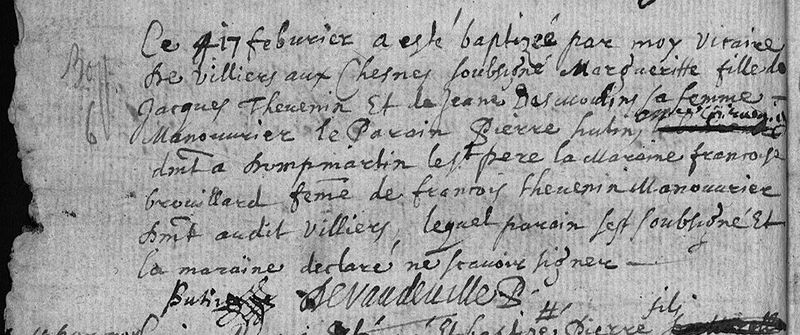 Ce 17 feburier a esté baptizeé par moy vicaire
de villiers aux Chesnes soubsigné Margueritte fille de
Jacques Thevenin Et de Jeane Desmoulins sa femme
Manouvrier le Parain Pierre hutin
dmt a dompmartin le st pere la Maraine francoise
brouillard feme de francois thevenin Manouvrier
dmt audit villiers, lequel parain sest soubsigné Et
la maraine declaré ne scavoir signer
hutin Devaudeville P.
Pierre fils